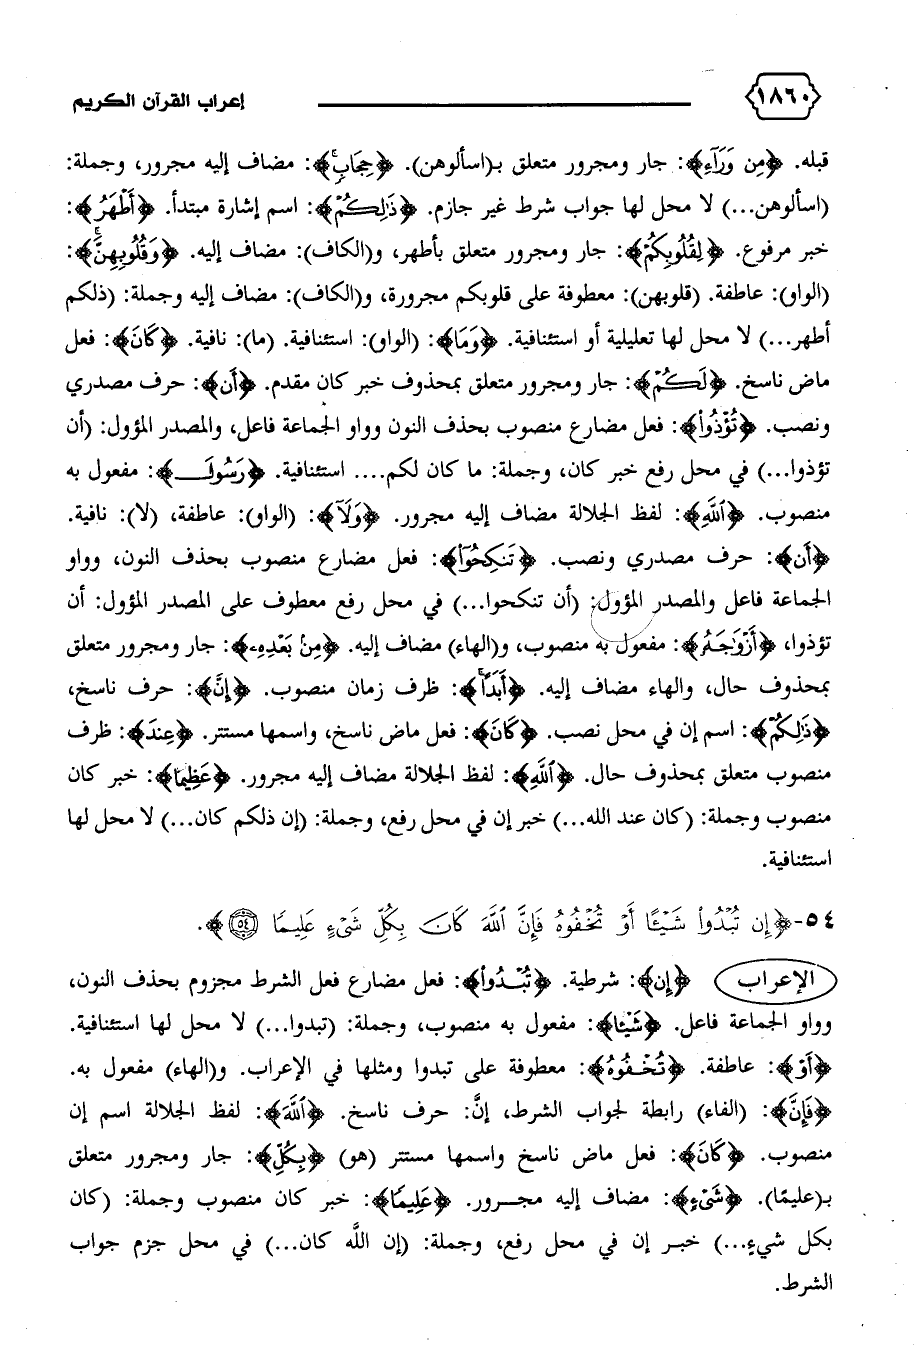 ١٨٦٠ إعراب القرآن الكريم
قبله. ﴿مِن وَرَآءِ﴾: جار ومجرور متعلق بـ(اسألوهن). ﴿حِجَابٍ﴾: مضاف إليه مجرور، وجملة:
(اسألوهن...) لا محل لها جواب شرط غير جازم. ﴿ذَٰلِكُمْ﴾: اسم إشارة مبتدأ. ﴿أَطْهَرُ﴾:
خبر مرفوع. ﴿لِقُلُوبِكُمْ﴾: جار ومجرور متعلق بأطهر، و(الكاف): مضاف إليه. ﴿وَقُلُوبِهِنَّ﴾:
(الواو): عاطفة. (قلوبهن): معطوفة على قلوبكم مجرورة، و(الكاف): مضاف إليه وجملة: (ذلكم
أطهر...) لا محل لها تعليلية أو استئنافية. ﴿وَمَا﴾: (الواو): استئنافية. (ما): نافية. ﴿كَانَ﴾: فعل
ماض ناسخ. ﴿لَكُمْ﴾: جار ومجرور متعلق بمحذوف خبر كان مقدم. ﴿أَن﴾: حرف مصدري
ونصب. ﴿تُؤْذُوا۟﴾: فعل مضارع منصوب بحذف النون وواو الجماعة فاعل، والمصدر المؤول: (أن
تؤذوا...) في محل رفع خبر كان، وجملة: ما كان لكم.... استئنافية. ﴿رَسُولَ﴾: مفعول به
منصوب. ﴿ٱللَّهِ﴾: لفظ الجلالة مضاف إليه مجرور. ﴿وَلَآ﴾: (الواو): عاطفة، (لا): نافية.
﴿أَن﴾: حرف مصدري ونصب. ﴿تَنكِحُوٓا۟﴾: فعل مضارع منصوب بحذف النون، وواو
الجماعة فاعل والمصدر المؤول: (أن تنكحوا...) في محل رفع معطوف على المصدر المؤول: أن
تؤذوا، ﴿أَزْوَٰجَهُۥ﴾: مفعول به منصوب، و(الهاء) مضاف إليه. ﴿مِنۢ بَعْدِهِۦٓ﴾: جار ومجرور متعلق
بمحذوف حال، والهاء مضاف إليه. ﴿أَبَدًا﴾: ظرف زمان منصوب. ﴿إِنَّ﴾: حرف ناسخ،
﴿ذَٰلِكُمْ﴾: اسم إن في محل نصب. ﴿كَانَ﴾: فعل ماض ناسخ، واسمها مستتر. ﴿عِندَ﴾: ظرف
منصوب متعلق بمحذوف حال. ﴿ٱللَّهِ﴾: لفظ الجلالة مضاف إليه مجرور. ﴿عَظِيمًا﴾: خبر كان
منصوب وجملة: (كان عند الله...) خبر إن في محل رفع، وجملة: (إن ذلكم كان...) لا محل لها
استئنافية.
٥٤-﴿إِن تُبْدُوا۟ شَيْـًٔا أَوْ تُخْفُوهُ فَإِنَّ ٱللَّهَ كَانَ بِكُلِّ شَىْءٍ عَلِيمًا ٥٤﴾.
الإعراب ﴿إِن﴾: شرطية. ﴿تُبْدُوا۟﴾: فعل مضارع فعل الشرط مجزوم بحذف النون،
وواو الجماعة فاعل. ﴿شَيْـًٔا﴾: مفعول به منصوب، وجملة: (تبدوا...) لا محل لها استئنافية.
﴿أَوْ﴾: عاطفة. ﴿تُخْفُوهُ﴾: معطوفة على تبدوا ومثلها في الإعراب. و(الهاء) مفعول به.
﴿فَإِنَّ﴾: (الفاء) رابطة لجواب الشرط، إنَّ: حرف ناسخ. ﴿ٱللَّهَ﴾: لفظ الجلالة اسم إن
منصوب. ﴿كَانَ﴾: فعل ماض ناسخ واسمها مستتر (هو) ﴿بِكُلِّ﴾: جار ومجرور متعلق
بـ(عليمًا). ﴿شَىْءٍ﴾: مضاف إليه مجرور. ﴿عَلِيمًا﴾: خبر كان منصوب وجملة: (كان
بكل شيءٍ...) خبر إن في محل رفع، وجملة: (إن اللَّه كان...) في محل جزم جواب
الشرط.